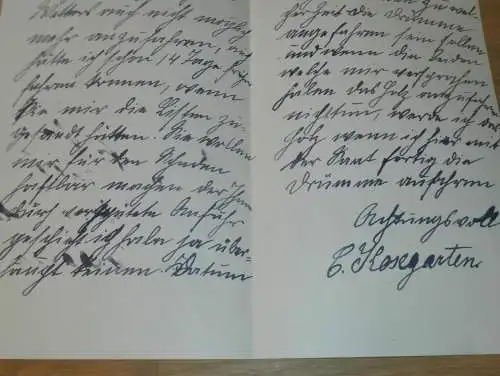 Wetters auch nicht möglich
mehr anzufahren, auch
hätte ich schon 14 Tage früher
fahren können, wenn
Sie mir die Listen zu-
gesandt hätten. Sie wollen
mich für den Schaden
haftbar machen der Ihnen
durch verspätete Anfuhr
geschieht ich habe ja über-
haupt keinen Datum
die Drümme
angefahren sein sollen
und wenn die beiden
welche mir versprochen
haben das Holz anzufahren
nicht tun, werde ich das
Holz wenn ich hier mit
der Saat fertig die
Drümme anfahren
Achtungsvoll
C. Kosegarten